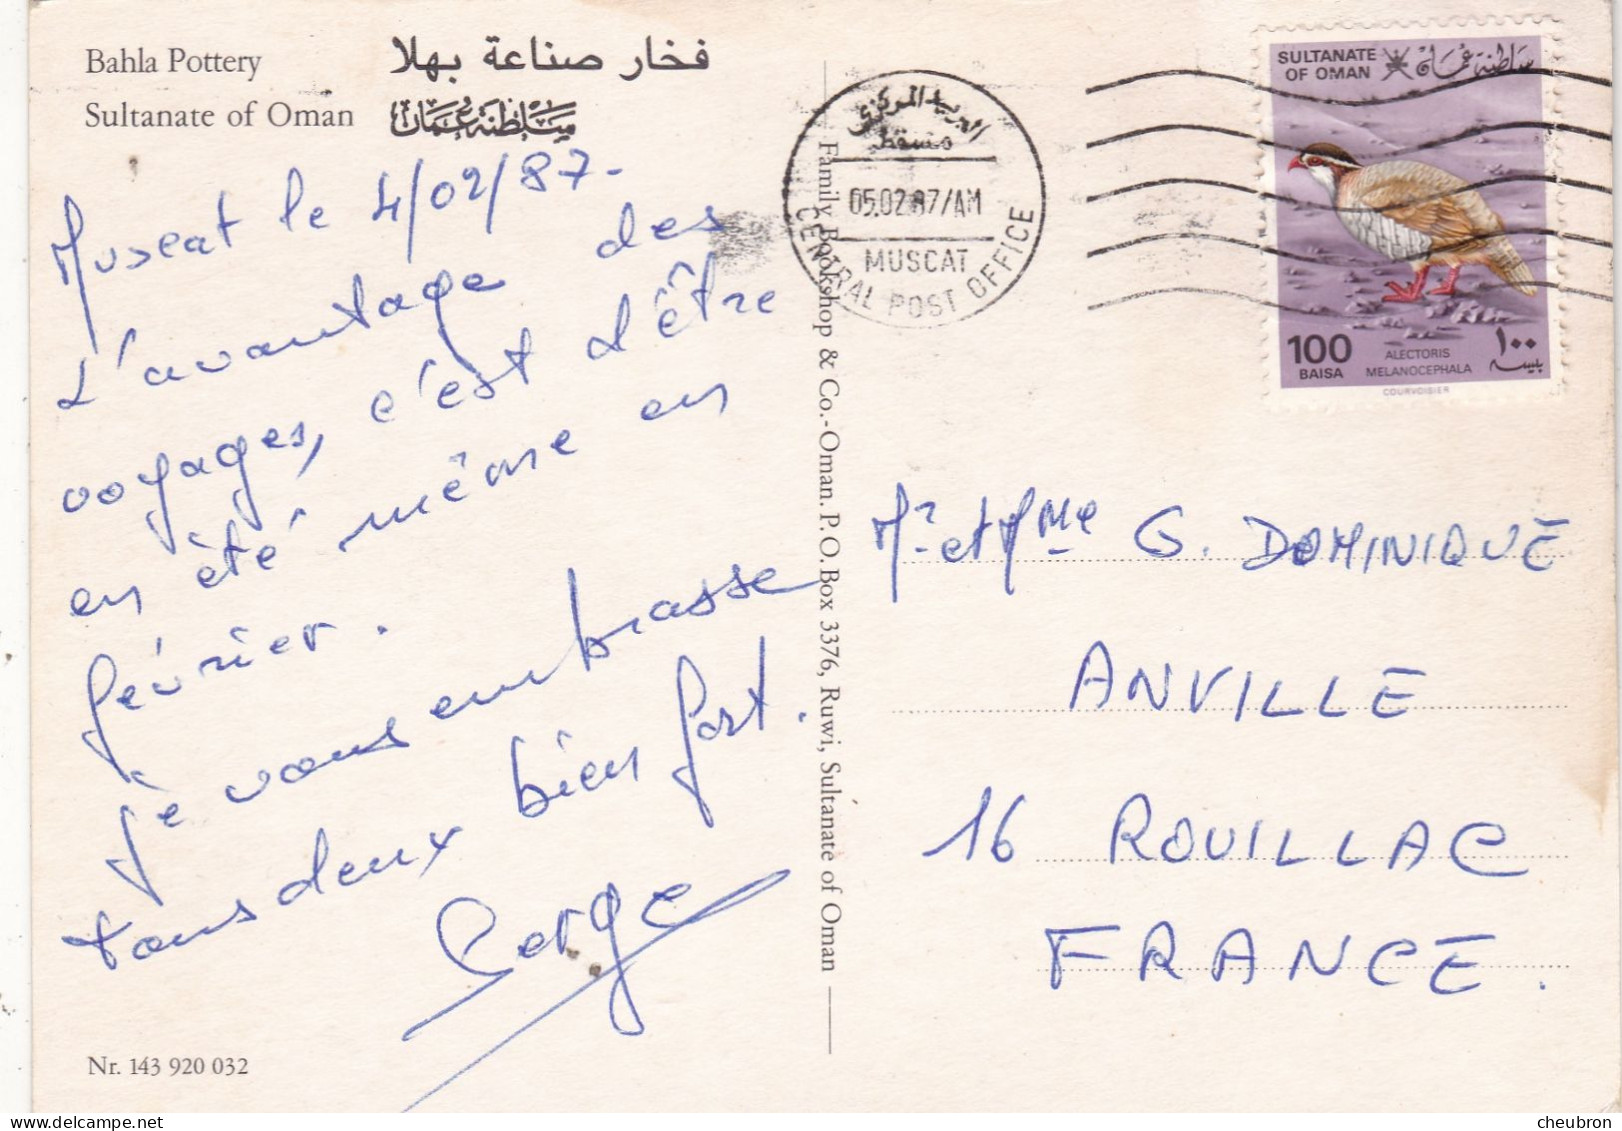 Bahla Pottery
Sultanate of Oman
فخار صناعة بهلا
سلطنة عمان
Muscat le 4/02/87-
L'avantage des
voyages, c'est d'être
en été même en
février.
Je vous embrasse
tous deux bien fort.
Serge
Nr. 143 920 032
Family Bookshop & Co.-Oman. P.O. Box 3376, Ruwi, Sultanate of Oman
البريد المركزي
مسقط
05.02.87/AM
MUSCAT
CENTRAL POST OFFICE
SULTANATE
OF OMAN
سلطنة عمان
100
BAISA
ALECTORIS
MELANOCEPHALA
١٠٠
بيسة
COURVOISIER
Mr et Mme G. DOMINIQUE
ANVILLE
16 ROUILLAC
FRANCE.
cheubron